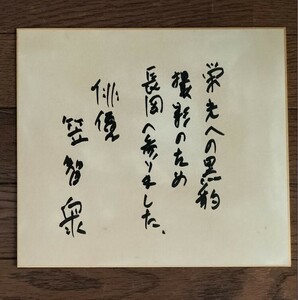 栄光への黒豹
撮影のため
長岡へ参りました、
俳優
笠智衆